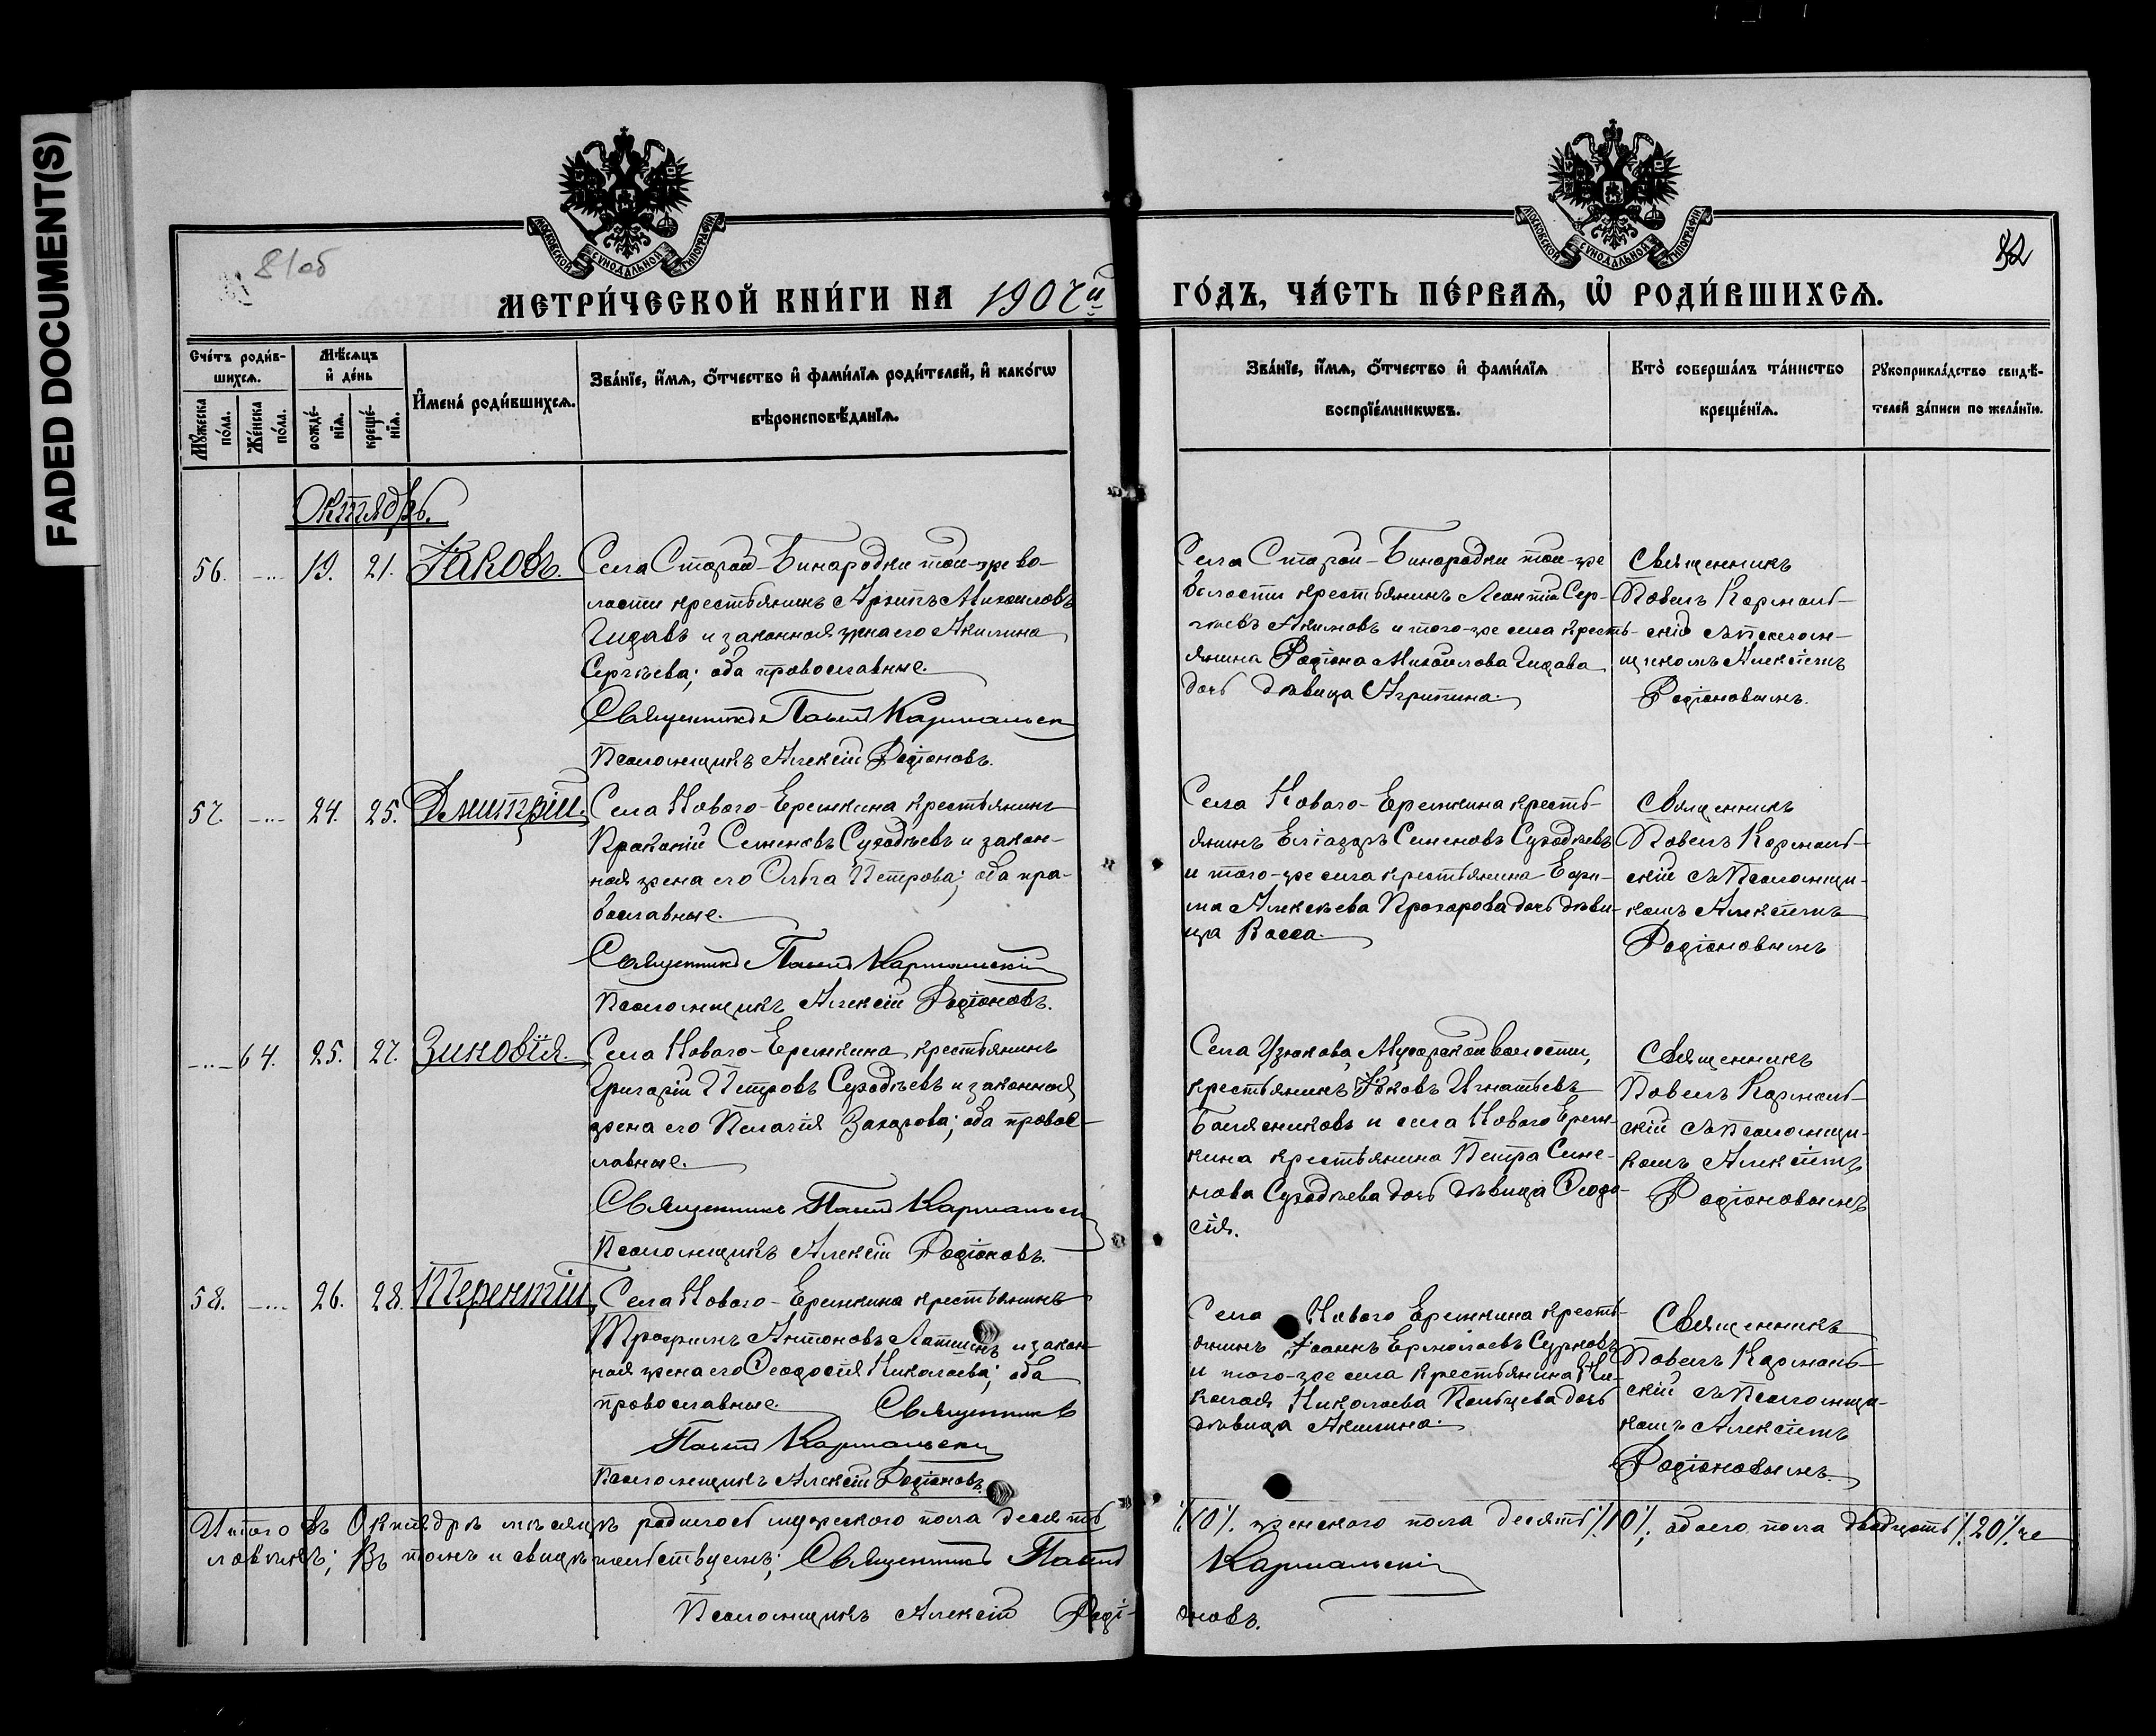 FADED DOCUMENT(S)
81об
82
МОСКОВСКОЙ СѴНОДАЛЬНОЙ ТИПОГРАФІИ
МОСКОВСКОЙ СѴНОДАЛЬНОЙ ТИПОГРАФІИ
МЕТРИ́ЧЕСКОЙ КНИ́ГИ НА 1907й ГО́ДЪ, ЧА́СТЬ ПЕ́РВАѦ, Ѡ҆ РОДИ́ВШИХСѦ.
Сче́тъ роди́в-
шихсѧ.
Мꙋ́жеска по́ла.
Же́нска по́ла.
Мѣ́сѧцъ
и҆ де́нь
рожде́-
нїѧ.
креще́-
нїѧ.
И҆мена̀ роди́вшихсѧ.
Зва́нїе, и҆́мѧ, ѻ҆́тчество и҆ фами́лїѧ роди́телей, и҆ како́гѡ
вѣроисповѣ́данїѧ.
Зва́нїе, и҆́мѧ, ѻ҆́тчество и҆ фами́лїѧ
воспрїе́мникѡвъ.
Кто̀ соверша́лъ та́инство
креще́нїѧ.
Рꙋкоприкла́дство свидѣ́-
телей за́писи по жела́нїю.
Октябрь.
56. -..- 19. 21. Іаковъ.
Села Старой-Бинарадки той-же во-
лости крестьянинъ Архипъ Михаиловъ
Чидавъ и законная жена его Акилина
Сергѣева; оба православные.
Священникъ Павелъ Кармальск
Псаломщикъ Алексій Родіоновъ.
Села Старой-Бинарадки той-же
волости крестьянинъ Леонтій Сер-
гѣевъ Акимовъ и того-же села кресть-
янина Родіона Михайлова Чидава
дочь дѣвица Агрипина.
Священникъ
Павелъ Кармаль-
скій съ псалом-
щикомъ Алексіемъ
Родіоновымъ.
57. -..- 24. 25. Димитрій.
Села Новаго-Еремкина крестьянинъ
Прокопій Семеновъ Суходѣевъ и закон-
ная жена его Ольга Петрова; оба пра-
вославные.
Священникъ Павелъ Кармальскій
Псаломщикъ Алексій Родіоновъ.
Села Новаго-Еремкина кресть-
янинъ Еліазаръ Семеновъ Суходѣевъ
и того-же села крестьянина Ефи-
ма Алексѣева Прохорова дочь дѣви-
ца Васса.
Священникъ
Павелъ Кармаль-
скій съ Псаломщи-
комъ Алексіемъ
Родіоновымъ
-..- 64. 25. 27. Зиновія.
Села Новаго-Еремкина крестьянинъ
Григорій Петровъ Суходѣевъ и законная
жена его Пелагія Захарова; оба правос-
лавные.
Священникъ Павелъ Кармальск
Псаломщикъ Алексій Родіоновъ.
Села Узюкова, Мусорской волости,
крестьянинъ Іаковъ Игнатьевъ
Балясниковъ и села Новаго Ерем-
кина крестьянина Петра Симе-
нова Суходѣева дочь дѣвица Ѳеодо-
сія.
Священникъ
Павелъ Кармаль-
скій съ псаломщи-
комъ Алексіемъ
Родіоновымъ
58. -..- 26. 28. Терентій
Села Новаго-Еремкина крестьянинъ
Трофимъ Антоновъ Латшинъ и закон-
ная жена его Ѳеодосія Николаева; оба
православные. Священникъ
Павелъ Кармальски
Псаломщикъ Алексій Родіоновъ.
Села Новаго Еремкина кресть-
янинъ Іоаннъ Ермолаевъ Сурковъ
и того-же села крестьянина Ни-
колая Николаева Пальцева дочь
дѣвица Акилина.
Священникъ
Павелъ Кармаль-
скій съ Псаломщи-
комъ Алексіемъ
Родіоновымъ.
Итого въ Октябрѣ мѣсяцѣ родилось мужского пола десять /.10/. женского пола десять /.10/., обоего пола двадцать /.20/. че
ловѣкъ; Въ томъ и свидѣтельствуемъ; Священникъ Павелъ Кармальскій
Псаломщикъ Алексій Роді- оновъ.